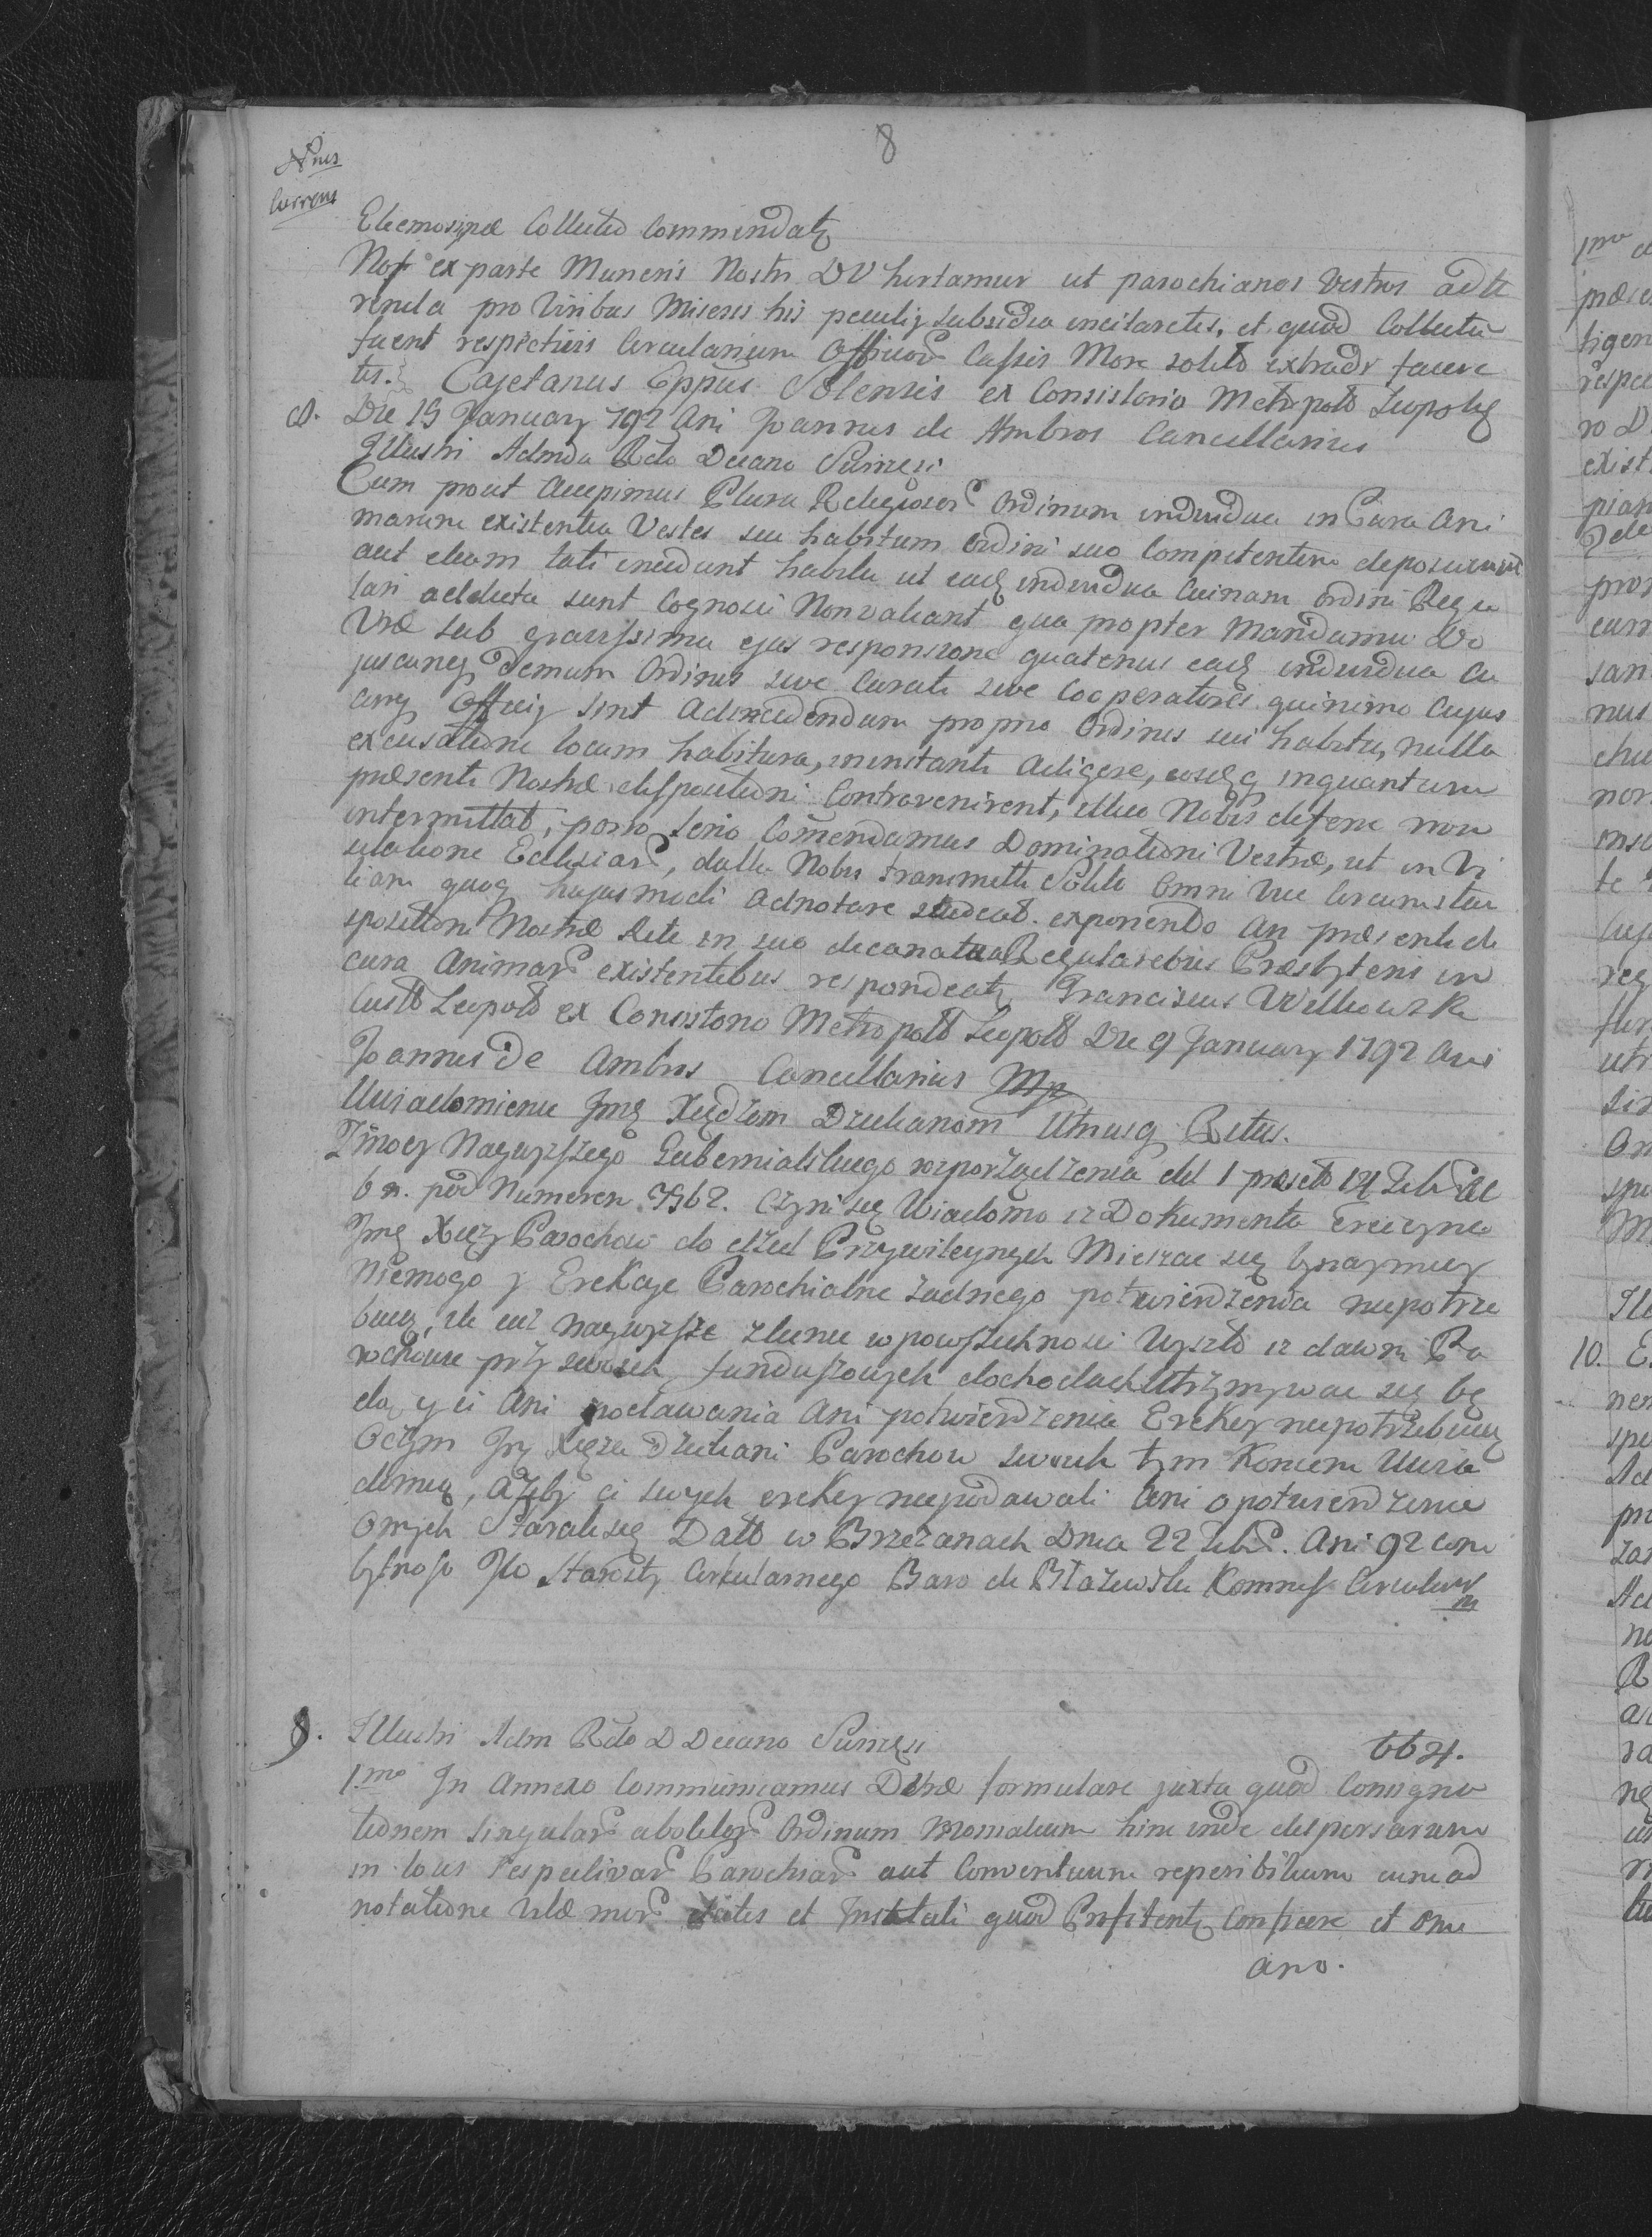 8
Nrus
Currens
Eleemosynæ Collectio commendatꝫ
Nos ex parte Muneris Nostri DV hortamur ut parochianos Vestros adfe
renda pro Viribus Miseris his peculij subsidia incitaretis, et quod Collectū
fuerit respectivis Circularium Officior Cassis More solito extradi facere
tis. Cajetanus Eppus Solensis ex Consistorio Metropolt Leopolis
Die 15 January 792 Ani Joannes de Ambros Cancellarius
8. Illustri Admdu Rdo Decano
Cum prout accepimus Plura Religiosor Ordinum individua in Cura Ani
marum existentia Vestes seu habitum Ordini suo Competentem deposuerunt
aut etiam tali incedunt habitu ut eadꝫ individua Cuinam Ordini Regu
lari addicta sunt Cognosci Non valeant qua propter Mandamus Do
Vræ sub gravissima ejus responsione quatenus eadꝫ individua Cu
juscunqꝫ demum Ordinis sive Curati sive Cooperatores quinimo Cujus
cunqꝫ Officij sint Ad incedendum proprio Ordinis sui habitu, nulla
excusatione locum habitura, in instanti adigere, eosdꝫ q inquantum
præsenti Nostræ dispositioni Contravenirent, illico Nobis deferre non
intermittat, porro serio Comendamus Dominationi Vestræ, ut in Vi
sitatione Ecclesiar, Nobis transmitti Solito Omni Circumstan
tiam quoq hujusmodi adnotare studeat. exponendo An præsenti di
spositioni Nostræ Rite in suo decanatu a Regularibus Præsbyteris in
cura Animar existentibus respondeatꝫ Franciscus
Custo Leopolt ex Consistorio Metropolt Leopolt Die 9 January 1792 Ani
Joannes de Ambros Cancellarius Mp
Uwiadomienie Jmę Xiędzom Dziekanom Utriusq Ritus.
Zmocy Naywyższego Gubernialskiego rozporządzenia dd 1 præseto 14
pod Numerem Czyni się Wiadomo iz Dokumenta Erekcyine
Jmę Xięzy Parochow do dzieł Przywileynych Mieszac się bynaymniey
Niemogą y Erekcye Parochialne zadnego potwierdzenia niepotrze
buią, ile iuż naywyższe zlecenie w powszechnosci Wyszło iz dawni Pa
rochowie przy swoich funduszowych dochodach utrzymywac się bę
dą y ci Ani podawania Ani potwierdzenia Erekcy niepotrzebuią
Oczym Jmę Xięza Dziekani Parochow swoich tym Koncem Uwia
domią, azeby ci swych erekcy niepodawali Ani o potwierdzenie
Onych Starali się Datt w Brzezanach Dnia 22 Ani 92
bytnosc Jlo Starosty Cirkularnego Baro de Błazewski Kommiss Circularis
m
9. Illustri Adm Rdo D Decano
664.
1mo In Annexo Communicamus DVræ formulare juxta quod Consigna
tionem Singular abolitor Ordinum Monialium hinc inde dispersarum
in locis respectivar Parochiar aut Conventuum reperibilium cum ad
notatione et Instituti quod Profitentꝫ Conficere et omi
ano.